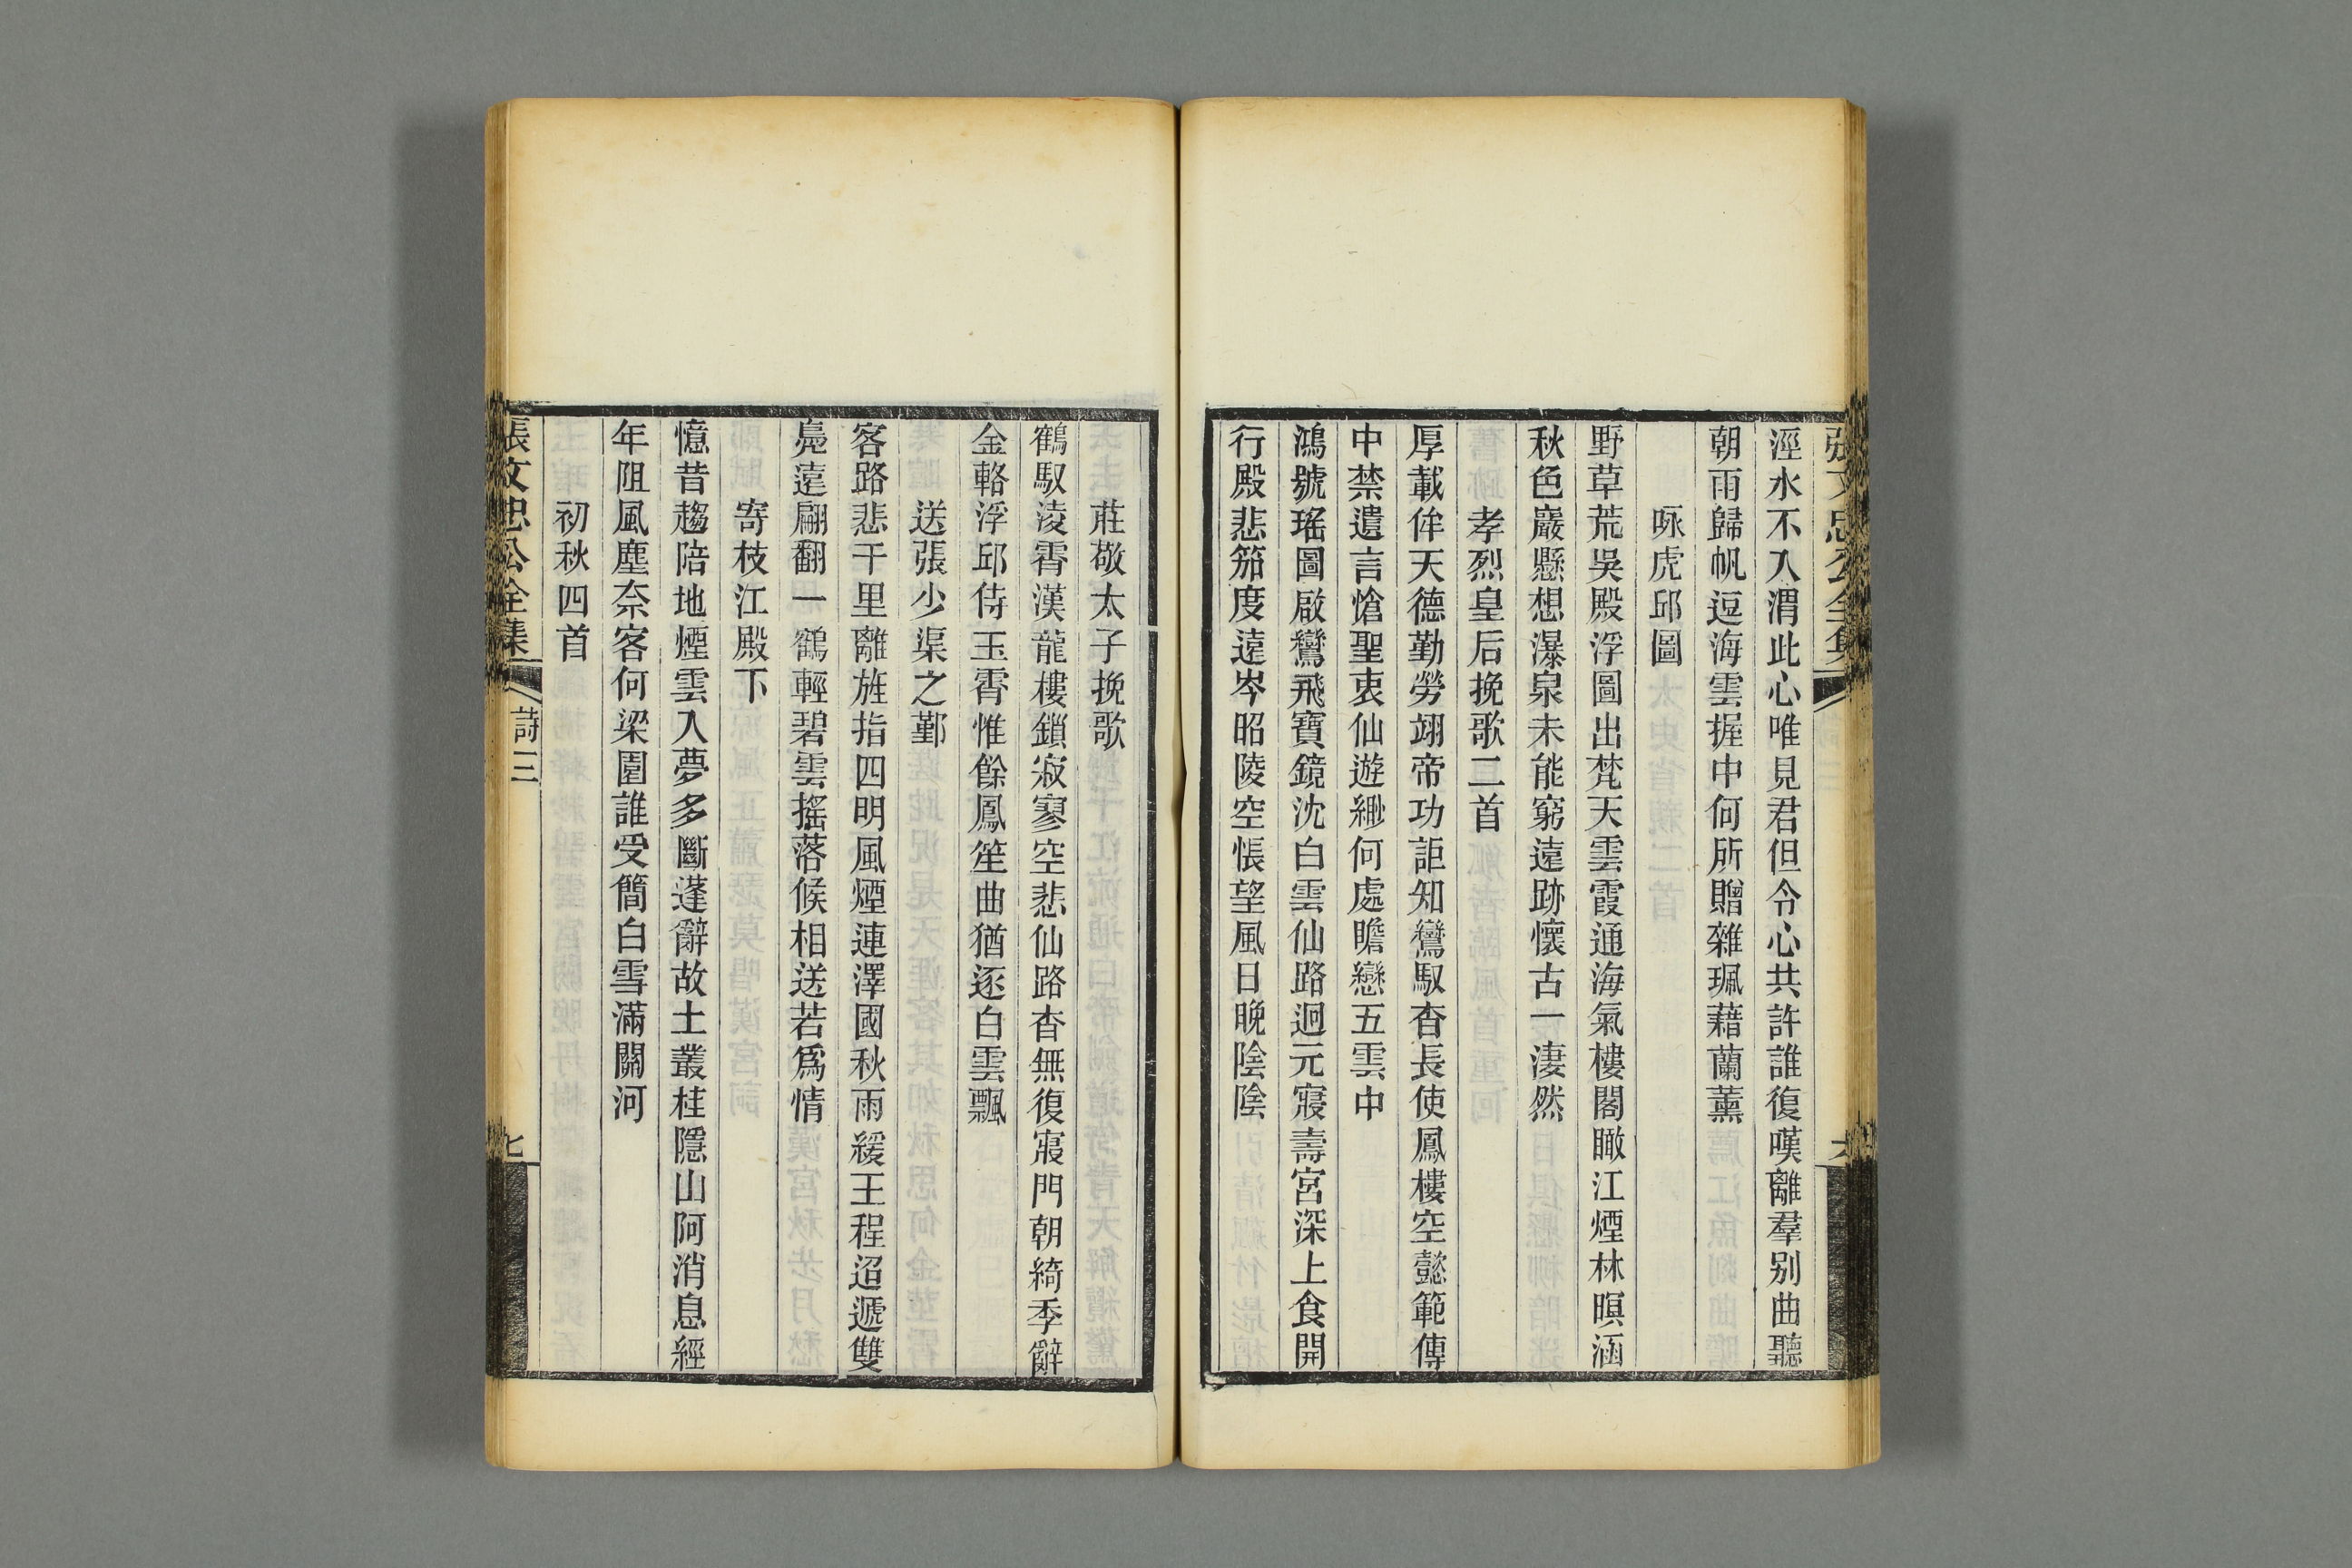 張文忠公全集
六
涇水不入渭此心唯見君但令心共許誰復嘆離羣别曲聽
朝雨歸帆逗海雲握中何所贈雜珮藉蘭薰
咏虎邱圖
野草荒吳殿浮圖出梵天雲霞通海氣樓閣瞰江煙林暝涵
秋色巖懸想瀑泉未能窮遠跡懷古一淒然
孝烈皇后挽歌二首
厚載侔天德勤勞翊帝功詎知鸞馭杳長使鳳樓空懿範傳
中禁遺言愴聖衷仙遊緲何處瞻戀五雲中
鴻號瑤圖啟鸞飛寶鏡沈白雲仙路迥元寢壽宮深上食開
行殿悲笳度遠岑昭陵空悵望風日晚陰陰
莊敬太子挽歌
鶴馭淩霄漢龍樓鎖寂寥空悲仙路杳無復寢門朝綺季辭
金輅浮邱侍玉霄惟餘鳳笙曲猶逐白雲飄
送張少渠之鄞
客路悲千里離旌指四明風煙連澤國秋雨緩王程迢遞雙
鳧遠翩翻一鶴輕碧雲搖落候相送若爲情
寄枝江殿下
憶昔趨陪地煙雲入夢多斷蓬辭故土叢桂隱山阿消息經
年阻風塵奈客何梁園誰受簡白雪滿關河
初秋四首
張文忠公全集
詩三
七